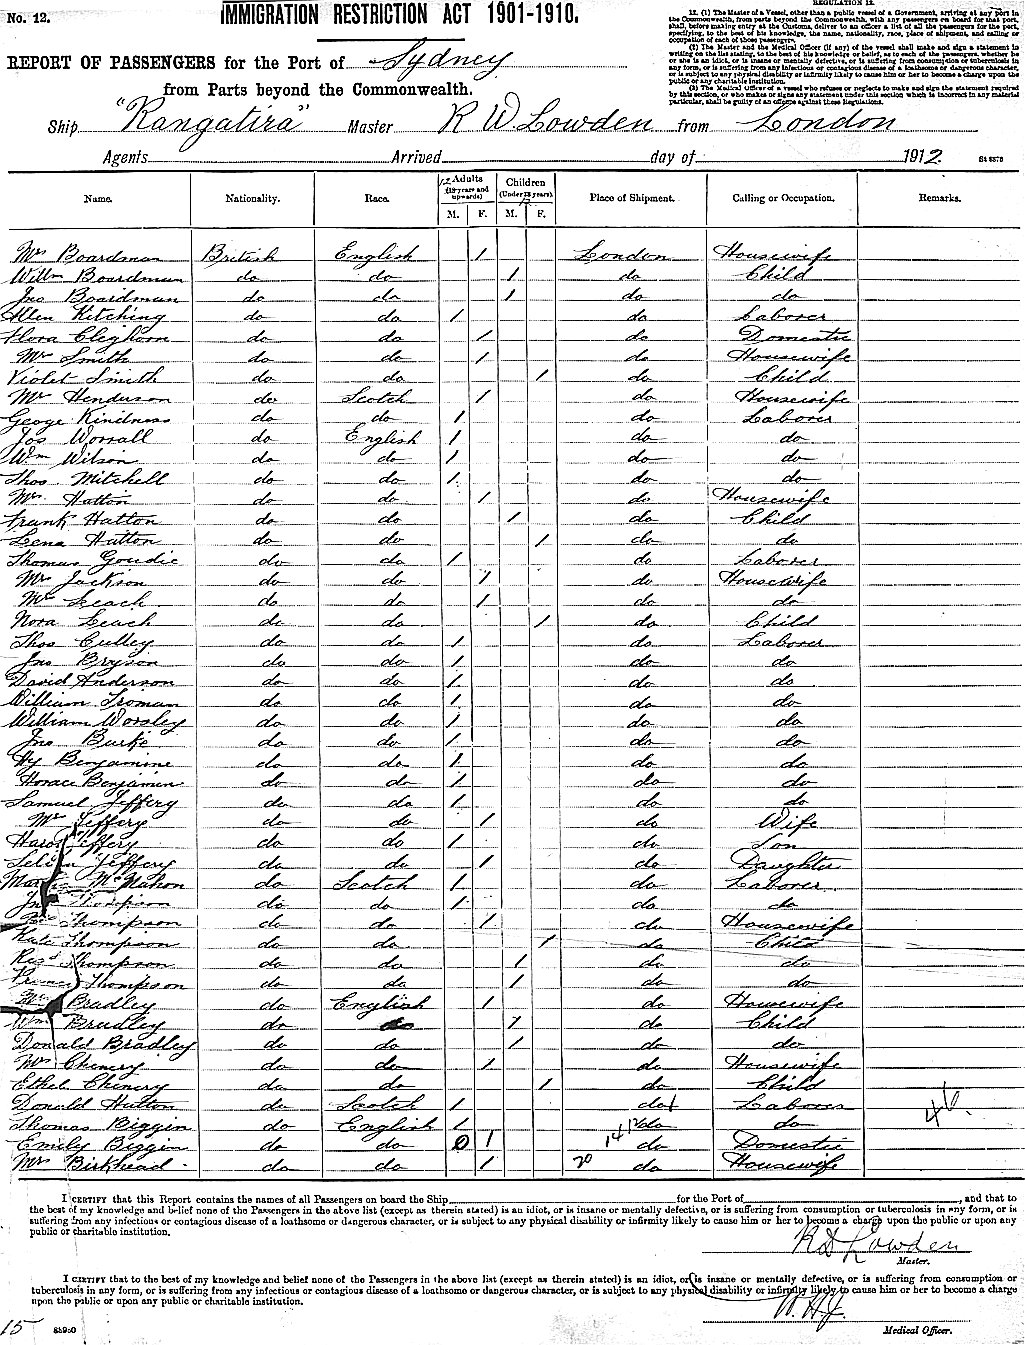 No. 12.
IMMIGRATION RESTRICTION ACT 1901-1910.
REGULATION 12.
REPORT OF PASSENGERS for the Port of Sydney
from Parts beyond the Commonwealth.
11. (1) The Master of a Vessel, other than a public vessel of a Government, arriving at any port in
the Commonwealth, from parts beyond the Commonwealth, with any passengers on board for that port,
shall, before making entry at the Customs, deliver to an officer a list of all the passengers for the port,
specifying, to the best of his knowledge, the name, nationality, race, place of shipment, and calling or
occupation of each of those passengers.
(2) The Master and the Medical Officer (if any) of the vessel shall make and sign a statement in
writing on the list stating, to the best of his knowledge or belief, as to each of the passengers, whether he
or she is an idiot, or is insane or mentally defective, or is suffering from consumption or tuberculosis in
any form, or is suffering from any infectious or contagious disease of a loathsome or dangerous character,
or is subject to any physical disability or infirmity likely to cause him or her to become a charge upon the
public or upon any public or charitable institution.
(3) The Medical Officer of a vessel who refuses or neglects to make and sign the statement required
by this section, or who makes or signs any statement under this section which is incorrect in any material
particular, shall be guilty of an offence against these Regulations.
Ship "Rangatira" Master R W Lowden from London
Agents Arrived day of 1912.
Name. Nationality. Race. 12 Adults (18 years and upwards) M. F. Children (Under 12 years). M. F. Place of Shipment. Calling or Occupation. Remarks.
Mrs Boardman British English 1 London Housewife
Willm Boardman do do 1 do Child
Jno Boardman do do 1 do do
Allen Kitching do do 1 do Laborer
Flora Cleghorn do do 1 do Domestic
Mrs Smith do do 1 do Housewife
Violet Smith do do 1 do Child
Mrs Henderson do Scotch 1 do Housewife
George Kindness do do 1 do Laborer
Jos Worrall do English 1 do do
Wm Wilson do do 1 do do
Thos Mitchell do do 1 do do
Mrs Hatton do do 1 do Housewife
Frank Hatton do do 1 do Child
Lena Hatton do do 1 do do
Thomas Goudie do do 1 do Laborer
Mrs Jackson do do 1 do Housewife
Mrs Leach do do 1 do do
Nora Leach do do 1 do Child
Thos Culley do do 1 do Laborer
Jno Bryson do do 1 do do
David Anderson do do 1 do do
William Troman do do 1 do do
William Worsley do do 1 do do
Jno Burke do do 1 do do
Hy Benjamine do do 1 do do
Horace Benjamin do do 1 do do
Samuel Jeffery do do 1 do do
Mrs Jeffery do do 1 do Wife
Harold Jeffery do do 1 do Son
Jeffery do do 1 do Daughter
McMahon do Scotch 1 do Laborer
Jno Thompson do do 1 do do
Thompson do do 1 do Housewife
Kate Thompson do do 1 do Child
Thompson do do 1 do do
Thompson do do 1 do do
Mrs Bradley do English 1 do Housewife
Wm Bradley do do 1 do Child
Donald Bradley do do 1 do do
Mrs Chenery do do 1 do Housewife
Ethel Chenery do do 1 do Child
Donald Hutton do Scotch 1 do Laborer 46
Thomas Biggin do English 1 do do
Emily Biggin do do 0 1 do Domestic
Mrs Birkhead do do 1 20 do Housewife
I CERTIFY that this Report contains the names of all Passengers on board the Ship for the Port of , and that to
the best of my knowledge and belief none of the Passengers in the above list (except as therein stated) is an idiot, or is insane or mentally defective, or is suffering from consumption or tuberculosis in any form, or is
suffering from any infectious or contagious disease of a loathsome or dangerous character, or is subject to any physical disability or infirmity likely to cause him or her to become a charge upon the public or upon any
public or charitable institution.
Lowden
Master.
I CERTIFY that to the best of my knowledge and belief none of the Passengers in the above list (except as therein stated) is an idiot, or is insane or mentally defective, or is suffering from consumption or
tuberculosis in any form, or is suffering from any infectious or contagious disease of a loathsome or dangerous character, or is subject to any physical disability or infirmity likely to cause him or her to become a charge
upon the public or upon any public or charitable institution.
15
Medical Officer.